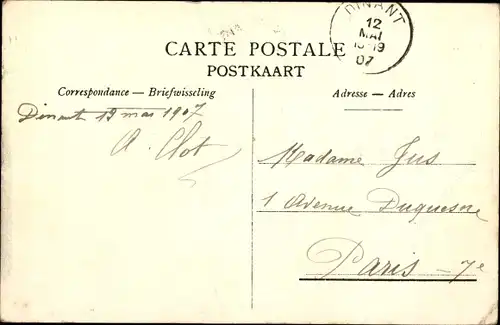 DINANT
12
MAI
07
CARTE POSTALE
POSTKAART
Correspondance — Briefwisseling
Adresse — Adres
Dinant 13 mai 1907
A. Clot
Madame Jus
1 Avenue Duquesne
Paris - 7e